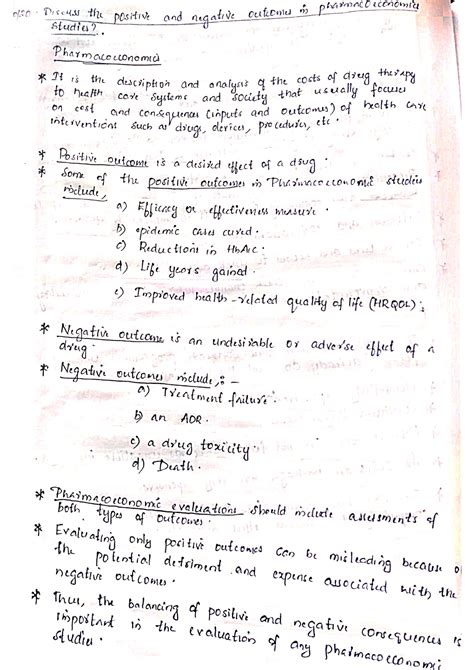 Discuss the positive and negative outcomes in pharmacoeconomics
studies?
Pharmacoeconomics
* It is the description and analysis of the costs of drug therapy
to health care systems and society that usually focuses
on cost and consequences (inputs and outcomes) of health care
interventions such as drugs, devices, procedures, etc.
* Positive outcome is a desired effect of a drug.
* Some of the positive outcomes in Pharmacoeconomic studies
include,
a) Efficacy or effectiveness measure.
b) epidemic cases cured.
c) Reductions in HbA1c.
d) Life years gained.
e) Improved health-related quality of life (HRQOL);
* Negative outcome is an undesirable or adverse effect of a
drug.
* Negative outcomes include,:-
a) Treatment failure.
b) an ADR.
c) a drug toxicity.
d) Death.
* Pharmacoeconomic evaluations should include assessments of
both types of outcomes.
* Evaluating only positive outcomes can be misleading because of
the potential detriment and expense associated with the
negative outcomes.
* Thus, the balancing of positive and negative consequences is
important in the evaluation of any pharmacoeconomic
studies.